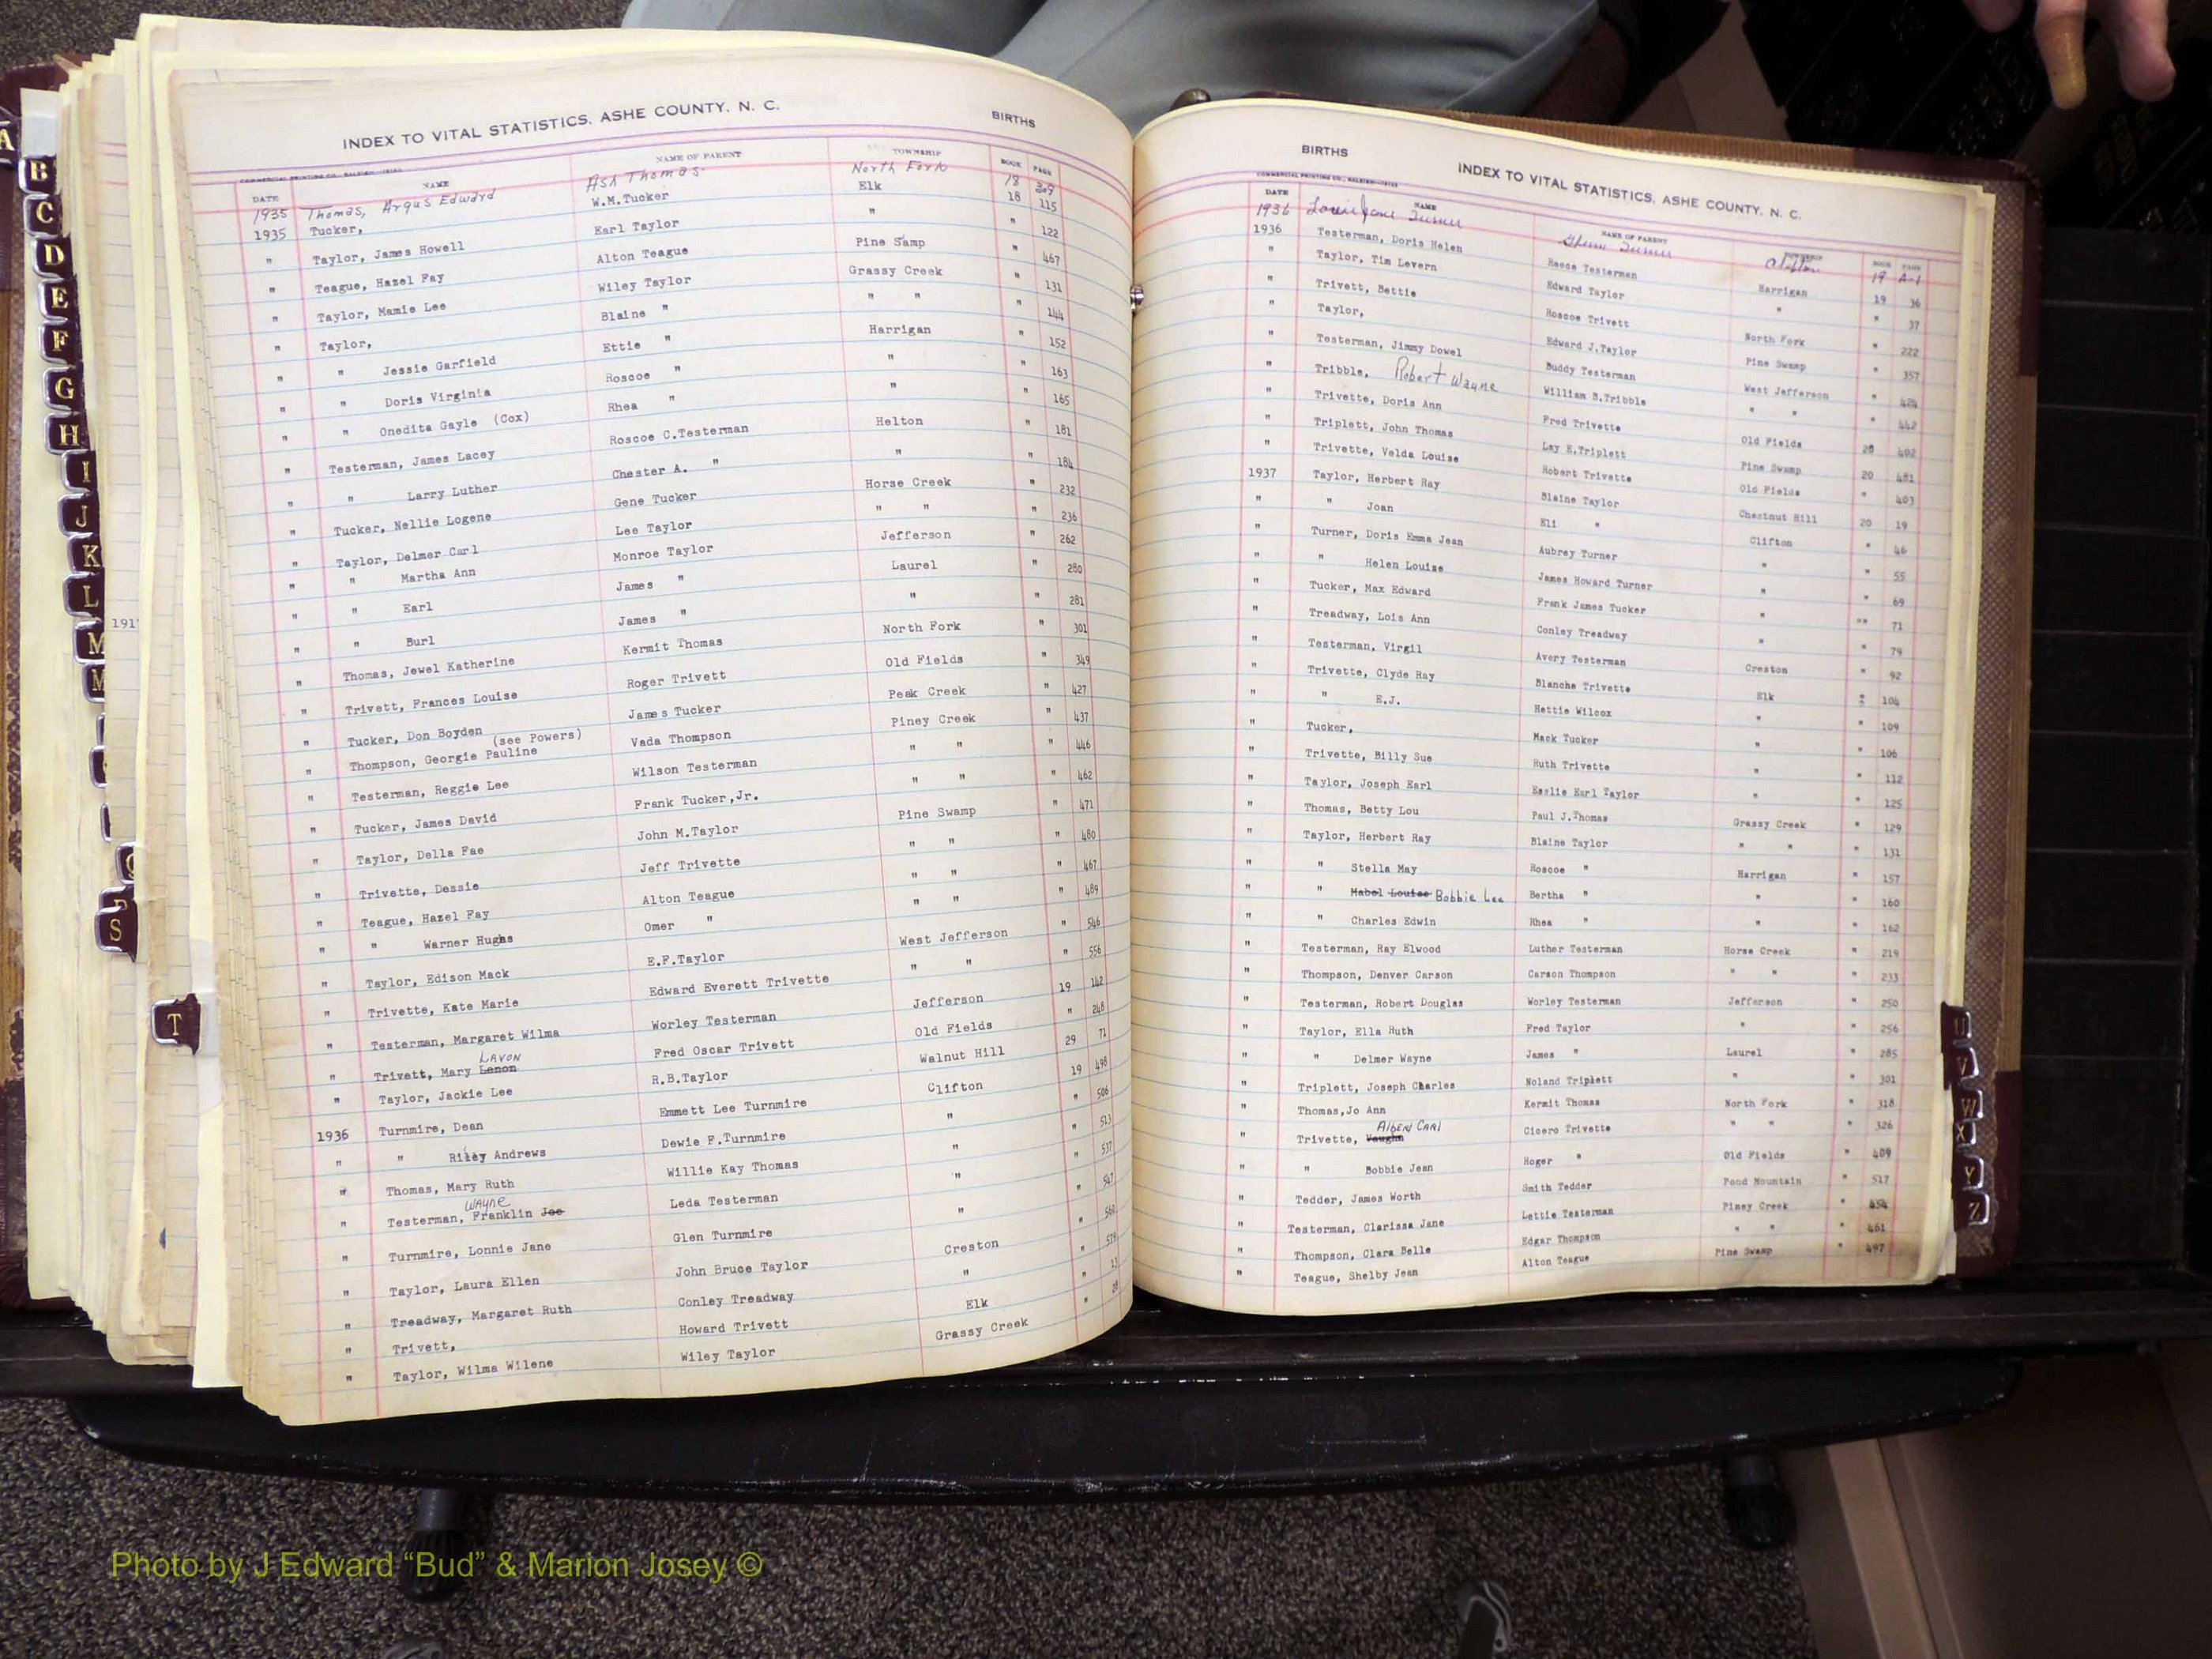 INDEX TO VITAL STATISTICS, ASHE COUNTY, N. C. BIRTHS
COMMERCIAL PRINTING CO., RALEIGH
DATE NAME NAME OF PARENT TOWNSHIP BOOK PAGE
1935 Thomas, Argus Edward Ash Thomas North Fork 18 309
1935 Tucker, W.M.Tucker Elk 18 115
" Taylor, James Howell Earl Taylor " " 122
" Teague, Hazel Fay Alton Teague Pine Samp " 467
" Taylor, Mamie Lee Wiley Taylor Grassy Creek " 131
" Taylor, Blaine " " " " 144
" " Jessie Garfield Ettie " Harrigan " 152
" " Doris Virginia Roscoe " " " 163
" " Onedita Gayle (Cox) Rhea " " " 165
" Testerman, James Lacey Roscoe C.Testerman Helton " 181
" " Larry Luther Chester A. " " " 184
" Tucker, Nellie Logene Gene Tucker Horse Creek " 232
" Taylor, Delmer Carl Lee Taylor " " " 236
" " Martha Ann Monroe Taylor Jefferson " 262
" " Earl James " Laurel " 280
" " Burl James " " " 281
" Thomas, Jewel Katherine Kermit Thomas North Fork " 301
" Trivett, Frances Louise Roger Trivett Old Fields " 349
" Tucker, Don Boyden James Tucker Peak Creek " 427
" Thompson, Georgie Pauline (see Powers) Vada Thompson Piney Creek " 437
" Testerman, Reggie Lee Wilson Testerman " " " 446
" Tucker, James David Frank Tucker,Jr. " " " 462
" Taylor, Della Fae John M.Taylor Pine Swamp " 471
" Trivette, Dessie Jeff Trivette " " " 480
" Teague, Hazel Fay Alton Teague " " " 467
" " Warner Hughs Omer " " " " 489
" Taylor, Edison Mack E.F.Taylor West Jefferson " 546
" Trivette, Kate Marie Edward Everett Trivette " " " 556
" Testerman, Margaret Wilma Worley Testerman Jefferson 19 142
" Trivett, Mary Lenon LAVON Fred Oscar Trivett Old Fields " 248
" Taylor, Jackie Lee R.B.Taylor Walnut Hill 29 71
1936 Turnmire, Dean Emmett Lee Turnmire Clifton 19 498
" " Riley Andrews Dewie F.Turnmire " " 506
" Thomas, Mary Ruth Willie Kay Thomas " " 513
" Testerman, Franklin Joe WAYNE Leda Testerman " " 537
" Turnmire, Lonnie Jane Glen Turnmire " " 547
" Taylor, Laura Ellen John Bruce Taylor Creston " 560
" Treadway, Margaret Ruth Conley Treadway " "
" Trivett, Howard Trivett Elk " 13
" Taylor, Wilma Wilene Wiley Taylor Grassy Creek " 28
BIRTHS INDEX TO VITAL STATISTICS, ASHE COUNTY, N. C.
COMMERCIAL PRINTING CO., RALEIGH
DATE NAME NAME OF PARENT TOWNSHIP BOOK PAGE
1936 Turner Turner Clifton 19 A-1
1936 Testerman, Doris Helen Reece Testerman Harrigan 19 36
" Taylor, Tim Levern Edward Taylor " " 37
" Trivett, Bettie Roscoe Trivett North Fork " 222
" Taylor, Edward J.Taylor Pine Swamp " 357
" Testerman, Jimmy Dowel Buddy Testerman West Jefferson " 424
" Tribble, Robert Wayne William B.Tribble " " " 442
" Trivette, Doris Ann Fred Trivette Old Fields 20 402
" Triplett, John Thomas Lay E.Triplett Pine Swamp 20 481
" Trivette, Velda Louise Robert Trivette Old Fields " 403
1937 Taylor, Herbert Ray Blaine Taylor Chestnut Hill 20 19
" " Joan Eli " Clifton " 46
" Turner, Doris Emma Jean Aubrey Turner " " 55
" " Helen Louise James Howard Turner " " 69
" Tucker, Max Edward Frank James Tucker " "" 71
" Treadway, Lois Ann Conley Treadway " " 79
" Testerman, Virgil Avery Testerman Creston " 92
" Trivette, Clyde Ray Blanche Trivette Elk " 104
" " E.J. Hettie Wilcox " " 109
" Tucker, Mack Tucker " " 106
" Trivette, Billy Sue Ruth Trivette " " 112
" Taylor, Joseph Earl Esslie Earl Taylor " " 125
" Thomas, Betty Lou Paul J.Thomas Grassy Creek " 129
" Taylor, Herbert Ray Blaine Taylor " " " 131
" " Stella May Roscoe " Harrigan " 157
" " Mabel Louise Bobbie Lee Bertha " " " 160
" " Charles Edwin Rhea " " " 162
" Testerman, Ray Elwood Luther Testerman Horse Creek " 219
" Thompson, Denver Carson Carson Thompson " " " 233
" Testerman, Robert Douglas Worley Testerman Jefferson " 250
" Taylor, Ella Ruth Fred Taylor " " 256
" " Delmer Wayne James " Laurel " 285
" Triplett, Joseph Charles Noland Triplett " " 301
" Thomas,Jo Ann Kermit Thomas North Fork " 318
" Trivette, Vaughn Alben Carl Cicero Trivette " " " 326
" " Bobbie Jean Roger " Old Fields " 409
" Tedder, James Worth Smith Tedder Pond Mountain " 517
" Testerman, Clarissa Jane Lettie Testerman Piney Creek " 454
" Thompson, Clara Belle Edgar Thompson " " " 461
" Teague, Shelby Jean Alton Teague Pine Swamp " 497
A
B
C
D
E
F
G
H
I
J
K
L
M
M
S
T
U
V
W
X
Y
Z
191
Photo by J Edward “Bud” & Marion Josey ©